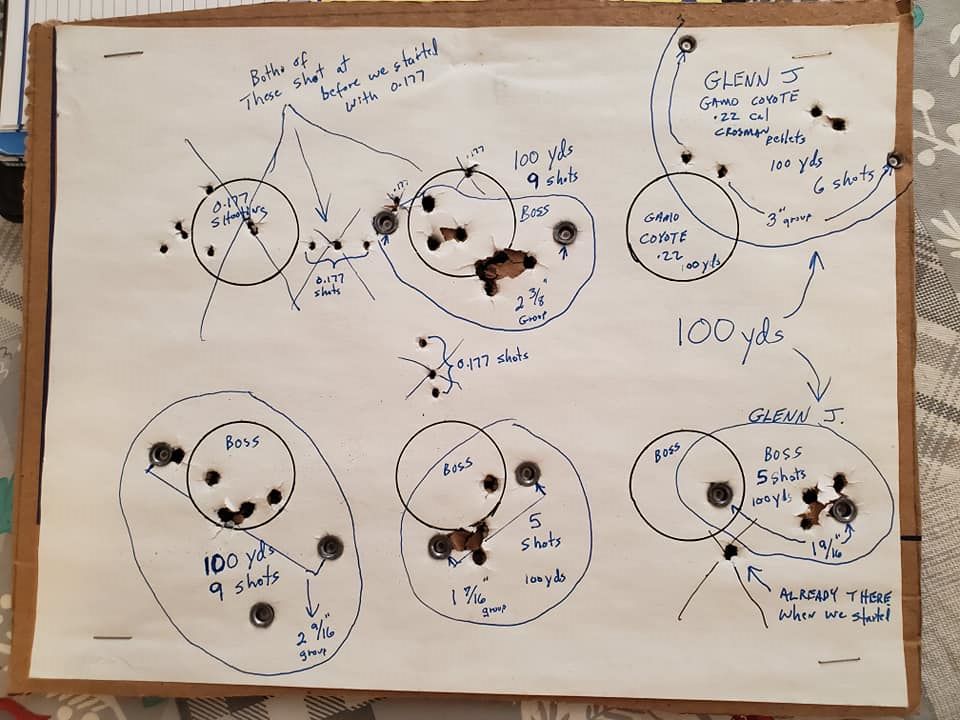 Both of
These shot at
before we started
with 0.177
0.177
Shooting
0.177
shots
.177
.177
100 yds
9 shots
BOSS
2 3/8"
Group
GLENN J
GAMO COYOTE
.22 cal
CROSMAN pellets
100 yds
6 shots
3" group
GAMO
COYOTE
.22
100 yds
100 yds
0.177 shots
BOSS
100 yds
9 shots
2 9/16"
group
BOSS
5
shots
100 yds
1 7/16"
group
GLENN J.
BOSS
BOSS
5 shots
100 yds
1 9/16"
ALREADY THERE
when we started